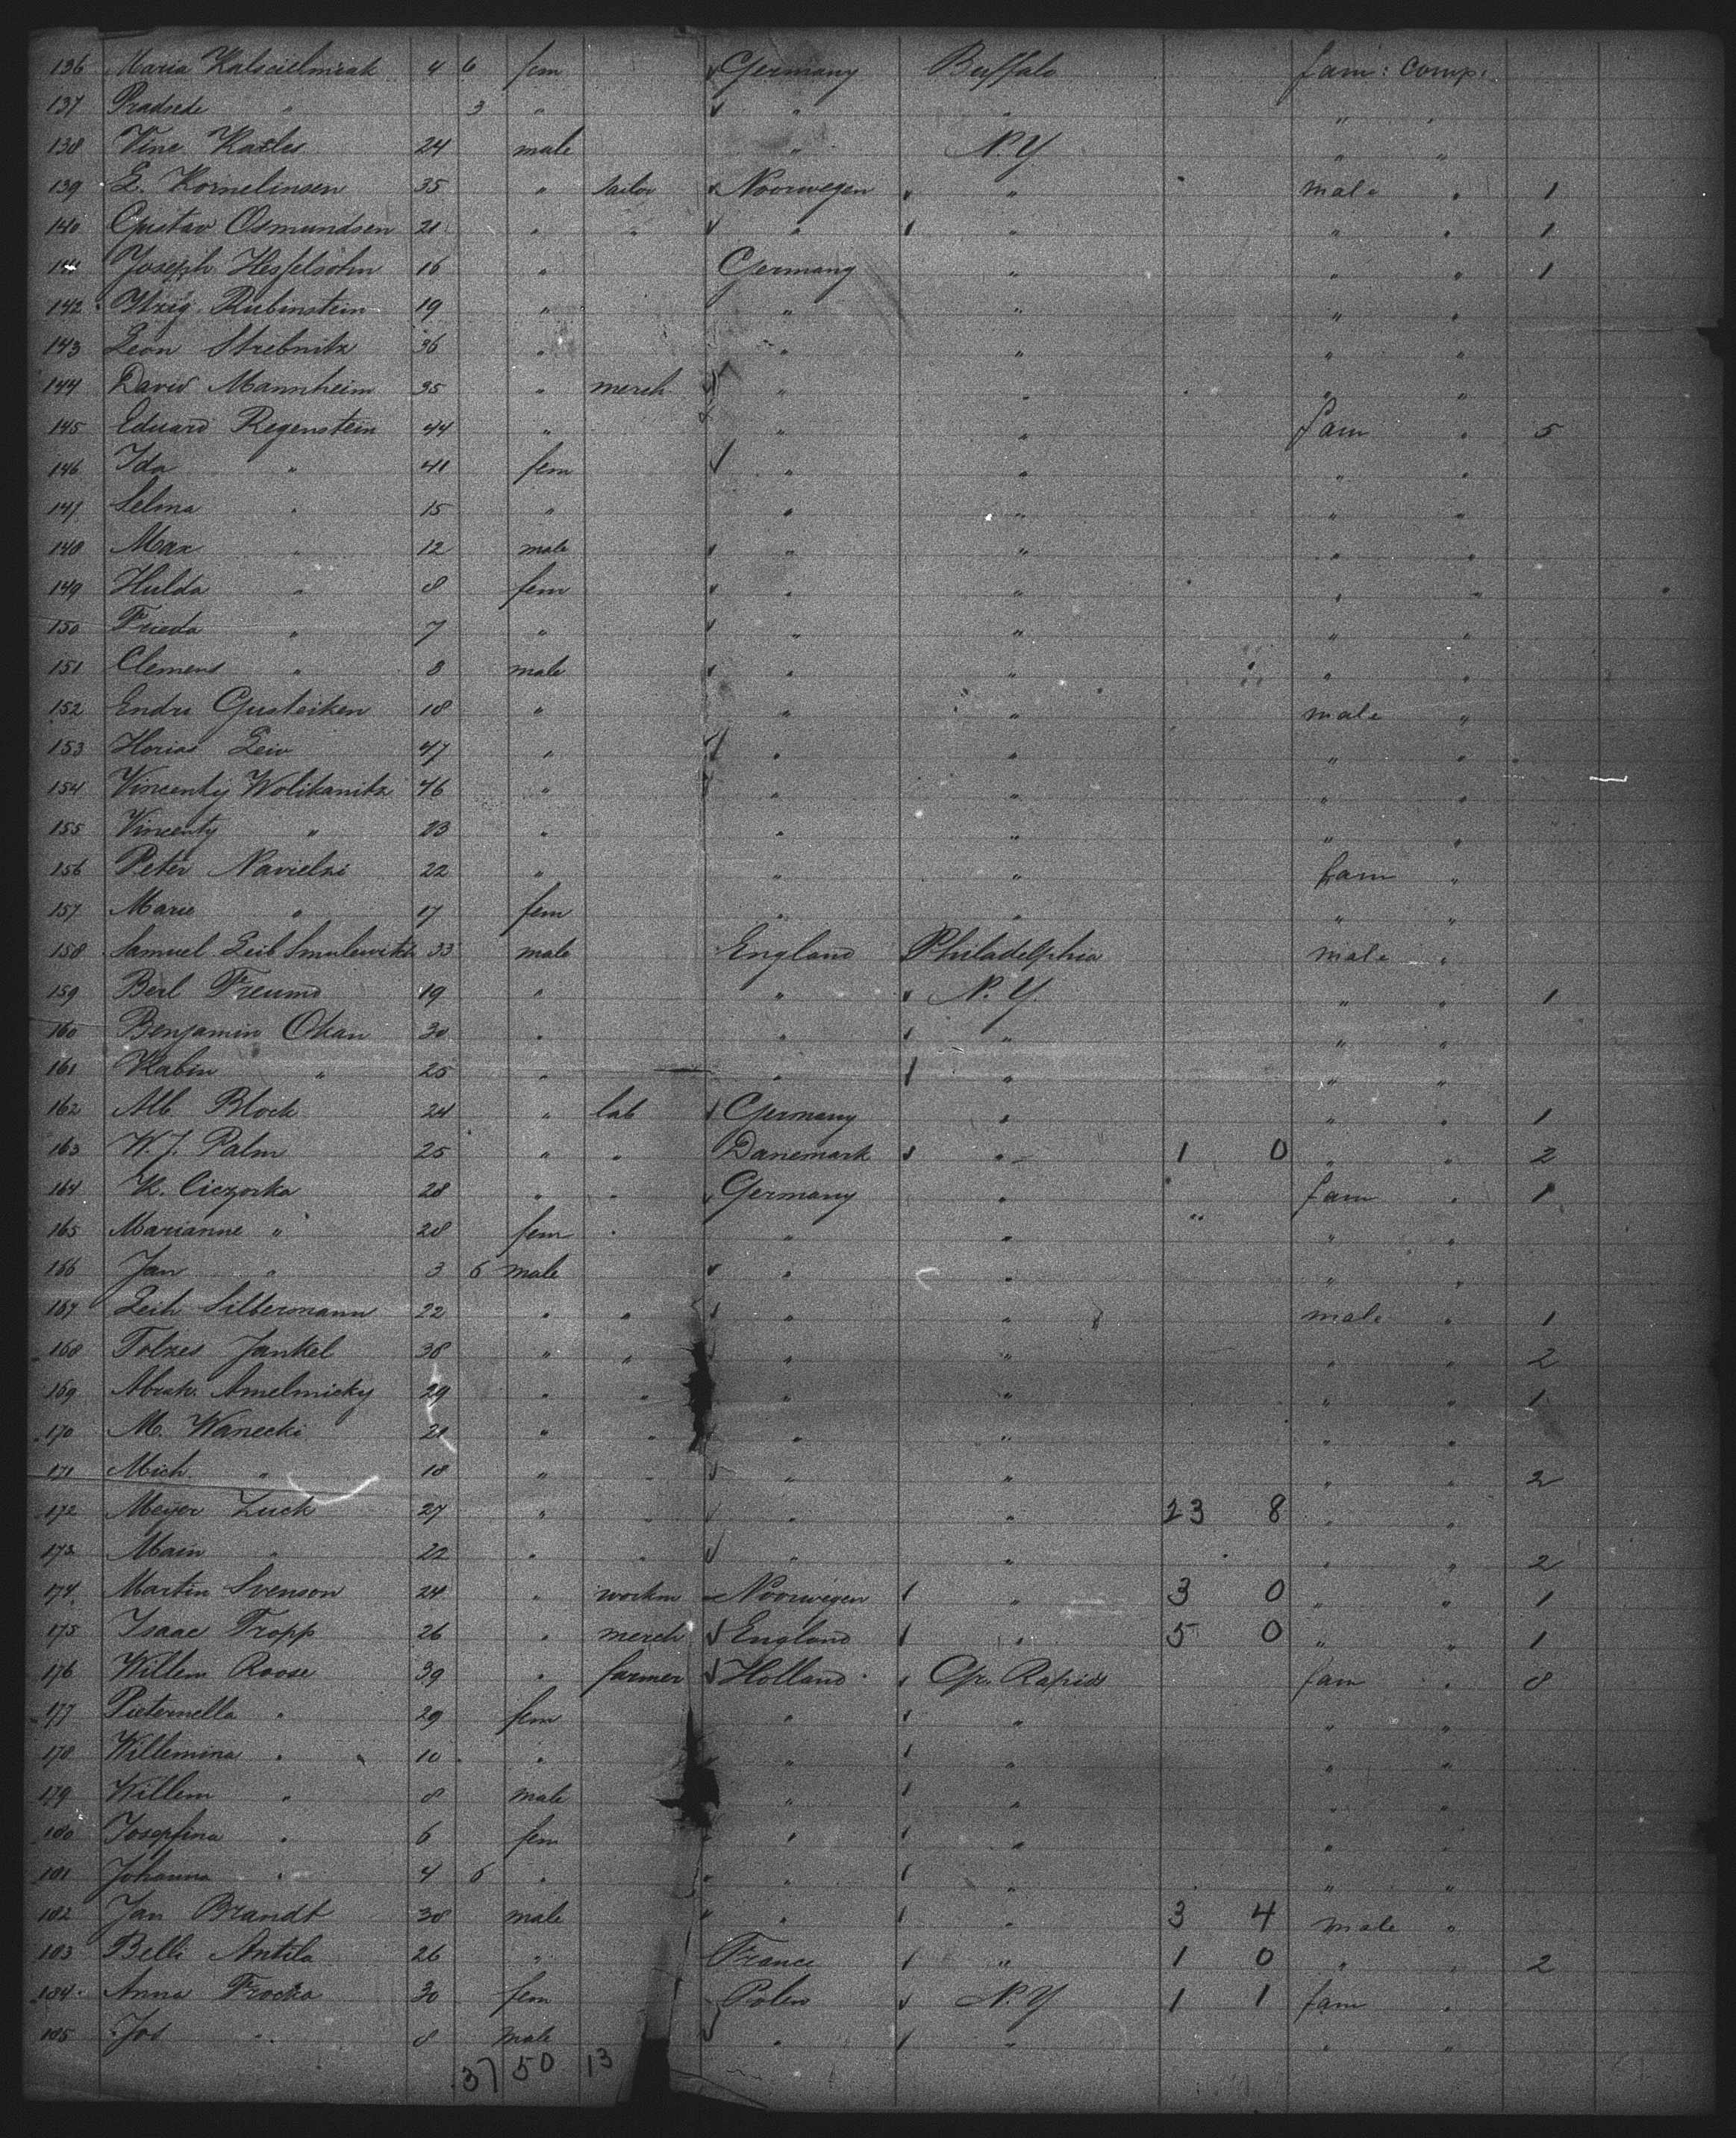 136 Maria Kalscielmiak 4 6 fem Germany Buffalo fam: comp:
137 Pradsede " 3 " " " " "
138 Vine Kastes 24 male " N. Y. " "
139 L. Kornelinsen 35 " sailor Noorwegen " male " 1
140 Gustav Osmundsen 21 " " " " " " 1
Joseph Hesselsohn 16 " Germany " " " 1
142 Itzig Rubinstein 19 " " " " "
143 Leon Strebnitz 36 " " " " "
144 David Mannheim 35 " merch " " " "
145 Eduard Regenstein 44 " " " fam " 5
146 Ida " 41 fem " " " "
147 Selma " 15 " " " " "
148 Max " 12 male " " " "
149 Hulda " 8 fem " " " "
150 Frieda " 7 " " " " "
151 Clemens " 8 male " " " "
152 Endre Gusteiken 18 " " " male "
153 Leiv 47 " " " " "
154 Vincenty Wolikanitz 46 " " " " "
155 Vincenty " 23 " " " " "
156 Peter Navielni 22 " " " fam "
157 Marie " 17 fem " " " "
158 Samuel Leib Smulewitch 33 male England Philadelphia male "
159 Berl Freund 19 " " N. Y. " " 1
160 Benjamin Okan 30 " " " " "
161 Kabin " 25 " " " " "
162 Alb. Block 24 " lab Germany " " " 1
163 W. J. Palm 25 " " Danemark " 1 0 " " 2
164 K. Ciczorka 28 " " Germany " fam " 1
165 Marianne " 28 fem " " " " "
166 Jan " 3 6 male " " " "
167 Leib Silbermann 22 " " " " male " 1
168 Tolzes Jankel 38 " " " " " " 2
169 Abrah. Amelnicky 29 " " " " " " 1
170 M. Wanecki 21 " " " " " "
171 Mich. " 18 " " " " " " 2
172 Meyer Luck 27 " " " " 23 8 " "
173 Main " 22 " " " " " " 2
174 Martin Svenson 24 " workm Noorwegen " 3 0 " " 1
175 Isaac Tropp 26 " merch England " 5 0 " " 1
176 Willem Roose 39 " farmer Holland Gr. Rapids fam " 8
177 Pieternella " 29 fem " " " "
178 Willemina " 10 " " " " "
179 Willem " 8 male " " " "
180 Josephina " 6 fem " " " "
181 Johanna " 4 6 " " " " "
182 Jan Brandt 38 male " " 3 4 male "
183 Belli Antila 26 " France " 1 0 " " 2
184 Anna Trocka 30 fem Polen N. Y 1 1 fam "
185 Jos " 8 male " " " "
37 50 13